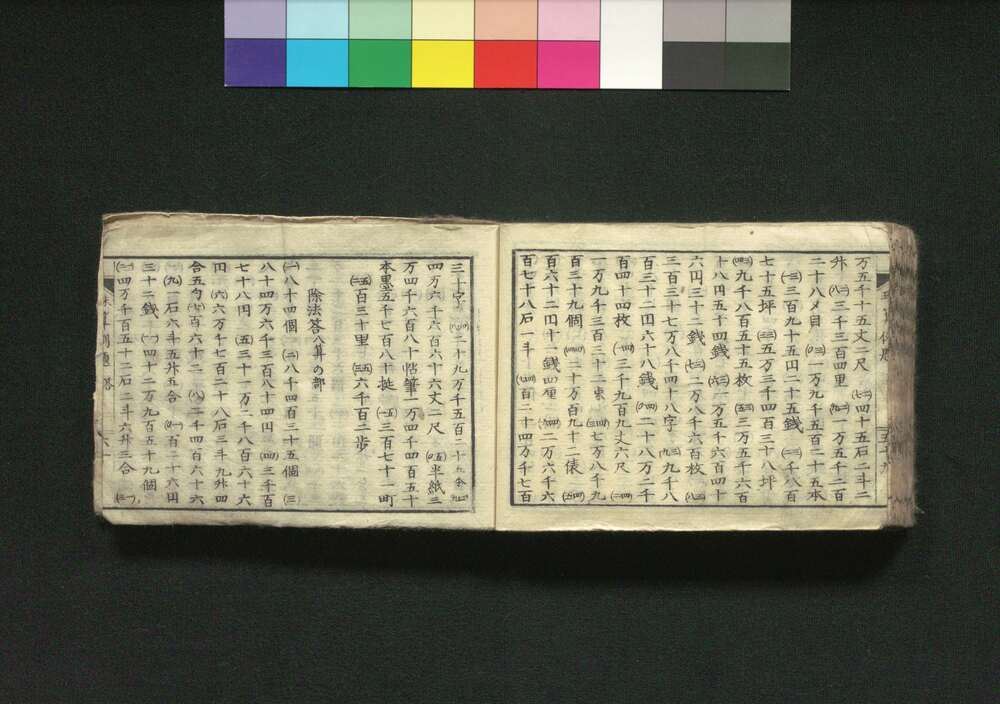 万五千十五丈二尺 (二七)四十五石二斗二
升 (二八)三千三百四里 (二九)一万五千二百
二十八〆目 (三〇)一万九千五百二十五本
(三一)三百九十五円二十五銭 (三二)千八百
七十五坪 (三三)五万三千四百三十八坪
(三四)九千八百五十五枚 (三五)三万五千六百
十八円五十四銭 (三六)一万五千百四十
六円三十二銭 (三七)二万八千六百枚 (三八)
三百三十七万八千四十八字 (三九)九千八
百三十二円六十八銭 (四〇)二十八万二千
百四十四枚 (四一)三千九百九丈六尺 (四二)
一万九千三百三十二束 (四三)七万八千九
百三十九個 (四四)二十万百九十二俵 (四五)
百六十二円十一銭四厘 (四六)二万六千六
百七十八石一斗 (四七)百二十四万千七百
三十字 (四八)二十九万千五百二十五
四万六千六百六十六丈二尺 (五〇)半紙三
万四千六百八十帖筆一万四千四百五十
本墨五千七百八十挺 (五一)三百七十一町
(五二)百三十里 (五三)六千百二歩
除法答八算の部
(一)八十四個 (二)八千四百三十五個 (三)
八十四万六千三百八十四円 (四)三千百
七十八円 (五)三十一万二千八百六十六
円 (六)六万千七百二十八石三斗九升四
合五勺 (七)百六十二 (八)二千四百六十六
(九)一石六斗五升五合 (一〇)百二十六円
三十二銭 (一一)四十二万九百五十九個
(一二)四万千百五十二石二斗六升三合 (一三)